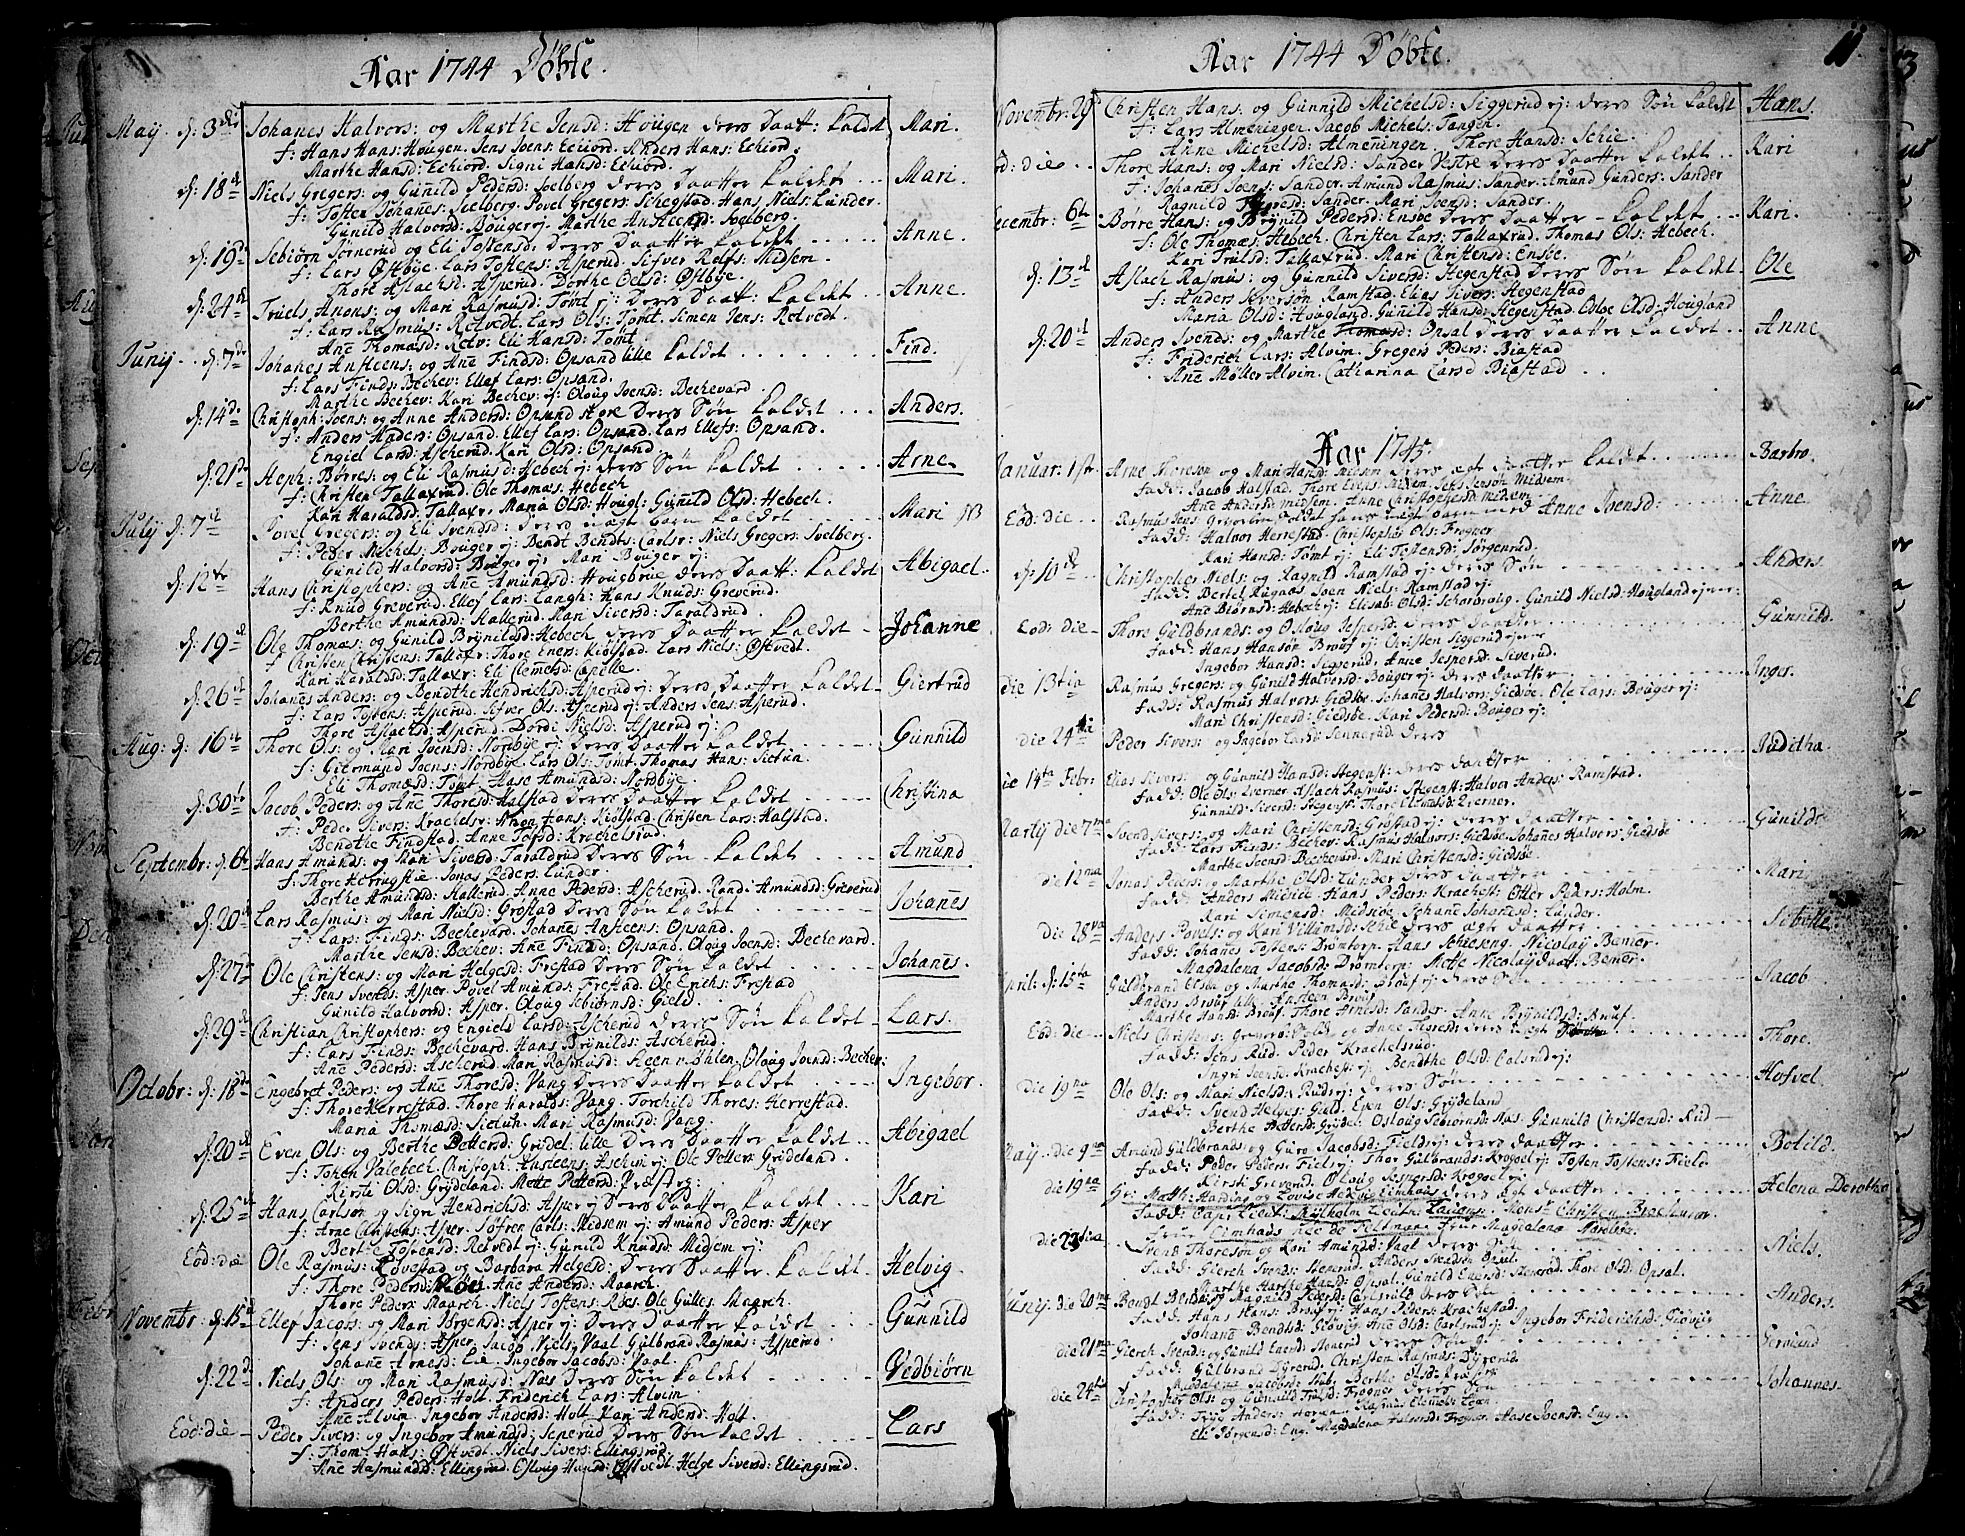 Aar 1744 Döbte.
May d: 3die Johanes Halvors: og Marthe Jensd: Hougen deres Daatt: kaldet Mari.
f: Hans Hans: Hougen. Jens Joens: Echiord. Anders Hans: Echiord.
Marthe Hansd: Echiord. Signi Hansd: Echiord.
d: 18de Niels Gregers: og Gunild Pedersd: Soelberg deres Daatter kaldet Mari.
f: Tosten Johanes: Sielberg. Povel Gregers: Schegstad. Hans Niels: Lunder.
Gunild Halvorsd: Bouger ej. Marthe Ansteensd: Soelberg.
d: 19de Sebiørn Jørnerud og Eli Tostensd: deres Daatter kaldet Anne.
f: Lars Østbye. Lars Tostens: Asperud. Sifver Rolfs: Midsem.
Thore Aslachsd: Asperud. Dorthe Oelsd: Østbye.
d: 24de Truels Anons: og Mari Rasmusd: Tømt ej: deres Daatt: kaldet Anne.
f: Lars Rasmus: Retvedt. Lars Ols: Tomt. Simen Jens: Retvedt.
Ane Thomasd: Retv: Eli Hansd: Tomt.
Junij d: 7de Johanes Ansteens: og Ane Findsd: Opsand lille kaldet Find.
f: Lars Finds: Bechev: Ellef Lars: Opsand.
Marthe Bechev: Kari Bechev ej: Oloug Joensd: Bechevard.
d: 14de Christoph: Joens: og Anne Andersd: Opsand store deres Søn kaldet Anders.
f: Anders Anders: Opsand. Ellef Lars: Opsand. Lars Ellefs: Opsand.
Engiel Larsd: Ascherud. Kari Olsd: Opsand.
d: 21de Steph: Børres: og Eli Rasmusd: Hebech ej: deres Søn kaldet Arne.
f: Christen Tallaxrud. Ole Thomæs: Hebech
Kari Haraldsd: Tallaxr: Maria Olsd: Hougl: Gunild Olsd: Hebech.
July d: 7de Povel Gregers: og Eli Svendsd: deres uægt barn kaldet Mari NB
f: Peder Michels: Bouger ej: Bendt Bendts: Carlsr: Niels Gregers: Svelberg.
Gunild Halvorsd: Bouger ej: Mari Bouger ej:
d: 12te Hans Christophers: og Ane Amundsd: Hougbrue deres Daatt: kaldet Abigael.
f: Knud Greverud. Ellef Lars: Langh: Hans Knuds: Greverud.
Berthe Amundsd: Hallerud. Mari Siversd: Taraldrud.
d: 19de Ole Thomæs: og Gunild Brynildsd: Hebech deres Daatter kaldet Johanne
f: Christen Christens: Tallaxr: Thore Eners: Kiølstad. Lars Niels: Østvedt.
Kari Haraldsd: Tallaxr: Eli Clemetsd: Capelle.
d: 26de Johanes Anders: og Bendthe Hendrichsd: Asperud ej: deres Daatter kaldet Giertrud
f: Lars Tostens: Asperud. Sifver Ols: Asperud ej: Anders Jens: Asperud.
Thore Aslachsd: Asperud. Dordi Nielsd: Asperud ej:
Aug: d: 16de Thore Ols: og Mari Joensd: Nordbye ej: deres Daatter kaldet Gunnild
f: Giermund Joens: Nordbye. Lars Ols: Tomt. Thomas Hans: Sietun.
Eli Thomæsd: Tomt. Aase Amundsd: Nordbye.
d: 30te Jacob Peders: og Ane Thoresd: Halstad deres Daatter kaldet Christina
f: Peder Sivers: Krachelsr: Anon Hans: Kiølstad. Christen Lars: Halstad.
Berthe Findstad. Anne Tofsd: Krachelsrud.
Septembr: d: 6te Hans Amunds: og Mari Siversd: Taraldrud deres Søn kaldet Amund
f: Thore Herrugstie. Jonas Peders: Lunder.
Berthe Amundsd: Hallerud. Anne Pedersd: Ascherud. Randi Amundsd: Greverud
d: 20de Lars Rasmus: og Mari Nielsd: Grøstad deres Søn kaldet Johanes
f: Lars: Finds: Bechevard. Johanes Ansteens: Opsand.
Marthe Jensd: Bechev: Ane Findsd: Opsand. Oloug Joensd: Bechevard.
d: 27de Ole Christens: og Mari Helgesd: Frestad deres Søn kaldet Johanes.
f: Jens Svends: Asper. Povel Amunds: Frestad. Ole Erichs: Frestad
Gunild Halvorsd: Asper. Oloug Sebiørnsd: Gield.
d: 29de Christian Christophers: og Engield Larsd: Ascherud deres Søn kaldet Lars.
f: Lars Finds: Bechevard. Hans Brynilds: Ascherud.
Ane Pedersd: Ascherud. Mari Rasmusd: Steen v: Ihlen. Oloug Joensd: Bechev:
Octobr: d: 18de Engebret Peders: og Ane Thoresd: Vang deres Daatter kaldet Ingebor.
f: Thore Herrestad. Thore Haralds: Vang. Torchild Thores: Herrestad.
Maria Thomæsd: Sietun. Mari Rasmusd: Vang.
d: 20de Even Ols: og Berthe Pettersd: Grydel: lille deres Daatter kaldet Abigael
f: Johen Valebech. Christoph: Ansteens: Aschim ej: Ole Petters: Grydeland.
Kirsti Olsd: Grydeland. Mette Pettersd: Præsteg:
d: 25de Hans Carlsøn og Signi Hendrichsd: Asper ej deres Daatter kaldet Kari
f: Arne Carstens: Asper. Sofren Carls: Midsem ej: Amund Peders: Asper
Berthe Tostensd: Retvedt ej: Gunild Knudsd: Midsem ej:
Eod: die Ole Rasmus: Lovestad og Barbara Helgesd: deres Daatter kaldet Helvig.
f: Thore Pedersd: Roes Ane Andersd: Maarch.
Thore Peders: Maarch. Niels Tostens: Roes. Ole Gulles: Maarch.
Novembr: d: 15de Ellef Jacobs: og Mari Jørgensd: Asper ej: deres Daatter kaldet Gunnild
f: Jens Svends: Asper. Jacob Niels: Vaal. Gulbrand Rasmus: Asperud
Johane Arnesd: Lie. Ingebor Jacobsd: Vaal.
d: 22de Niels Ols: og Mari Rasmusd: Næs deres Søn kaldet Vedbiørn
f: Anders Peders: Holt. Friderich Lars: Alvim.
Ane Alvim. Ingebor Andersd: Holt. Kari Andersd: Holt.
Eod: die Peder Sivers: og Ingebor Amundsd: Senerud deres Søn kaldet Lars
f: Thom: Hans: Østvedt. Niels Sivers: Ellingsrud.
Ane Rasmusd: Ellingsrud. Osloug Hansd: Østvedt Helge Siversd: Ellingsrud.
11.
Aar 1744 Döbte.
Novembr: 29de Christen Hans: og Gunnild Michelsd: Siggerud ej: deres Søn kaldet Hans.
f: Lars Almeningen. Jacob Michels: Tangen.
Anne Michelsd: Almeningen. Thore Hansd: Schie.
Eod: die Thore Hans: og Mari Nielsd: Sander Vestre deres Daatter kaldet Kari
f: Johanes Joens: Sander. Amund Rasmus: Sander. Amund Gunders: Sander
Ragnild Thoresd: Sander. Mari Joensd: Sander.
Decembr: 6te Børre Hans: og Brynild Pedersd: Ensøe deres Daatter kaldet Kari.
f: Ole Thomæs: Hebech. Christen Lars: Tallaxrud. Thomas Ols: Hebech.
Kari Trulsd: Tallaxrud. Mari Christensd: Ensøe.
d: 13de Aslach Rasmus: og Gunnild Siversd: Hegenstad deres Søn kaldet Ole
f: Anders Iversøn Ramstad. Elias Sivers: Hegenstad
Maria Olsd: Hougland. Gunild Hansd: Hegenstad. Edloe Olsd: Hougland
d: 20de Anders Svends: og Marthe Thomasd: Opsal deres Daatter kaldet Anne
f: Friderich Lars: Alvim. Gregers Peders: Biastad
Ane Møller Alvim. Catharina Larsd Biastad
Aar 1745.
Januar: 1ste Arne Thoresøn og Mari Hansd: Midsem deres ægt Daatter kaldet Barbro.
fadd: Jacob Halstad. Thore Evens: Midsem. Jens Jensøn Midsem.
Ane Andersd: Midsem. Anne Christophersd: Midsem
Eod: die Rasmus Jens: Greverud Soldat hans uægt barn med Anne Joensd: Anne
fadd: Halvor Herrestad. Christopher Ols: Frogner
Kari Hansd: Tømt ej: Eli Tostensd: Jørgenrud.
d: 10de Christopher Niels: og Ragnild Ramstad ej: deres Søn Anders.
fadd: Bertel Rugaas. Joen Niels: Ramstad ej:
Ane Biørnsd: Hebech ej: Elisab: Olsd: Gunild Nielsd: Hougland ejer:
Eod: die Thore Guldbrands: og Osloug Jespersd: deres Daatter Gunnild.
fadd: Hans Hansøn Bruuf ej: Christen Siggerud ejer
Ingebor Hansd: Siggerud. Anne Jespersd: Siverud.
die 13tia Rasmus Gregers: og Gunild Halvorsd: Bouger ej: deres Daatter Inger.
fadd: Rasmus Halvors: Giedsøe. Johanes Halvors: Giedsøe. Ole Lars: Bouger ej:
Mari Christensd: Giedsøe. Kari Pedersd: Bouger ej:
die 24ta Peder Sivers: og Ingebor Larsd: Sennerud deres
die 14ta Febr: Elias Sivers: og Gunnild Hansd: Hegenst: deres Daatter Juditha.
fadd: Ole Ols: Qverner Aslach Rasmus: Hegenst: Halvor Anders: Ramstad.
Gunnild Siversd: Hegenst: Thore Clemedsd: Qverner.
Martij die 7ma Svend Sivers: og Mari Christensd: Grøstad deres Daatter Gunild
fadd: Lars Finds: Bechev: Rasmus Halvors: Giedsøe. Johanes Halvors: Giedsøe
Marthe Joensd: Bechevard. Mari Christensd: Giedsøe.
die 12ma Jonas Peders: og Marthe Olsd: Lunder deres Daatter Mari
fadd: Anders Midsiøe. Hans Peders: Krachest: Otter Peders: Holm.
Kari Simensd: Midsiøe. Johane Johanesd: Lunder.
die 28va Anders Povels: og Kari Villumsd: Schie deres ægte Daatter Sebelle
fadd: Johanes Tostens: Drømtorp. Hans Schieseng. Nicolay Bemer.
Magdalena Jacobsd: Drømtorp. Mette Nicolaydaatt: Bemer.
April: d: 15ta Guldbrand Elsøn og Marthe Thomasd: Bruuf ej: deres Søn Jacob.
Anders Bruuf lille. Ansteen Bruuf.
Marthe Hansd: Bruuf. Thore Arnesd: Sander. Anne Brynildsd: Bruuf.
Eod: die Niels Christens: og Anne Thoresd: deres uægt Thore.
fadd: Jens Rud. Peder Krachelsrud.
Ingri Joensd: Krachest: ej: Bendthe Olsd: Carlsrud ej:
die 19na Ole Ols: og Mari Nielsd: Rudej: deres Søn Hofvel.
fadd: Svend Helges: Gield. Even Ols: Grydeland
Berthe Pettersd: Grydel: Osloug Sebiørnsd: Næs. Gunnild Christensd: Rud
May die 9na Amund Guldbrands: og Guro Jacobsd: Fields ej: deres Daatter Botild.
fadd: Peder Peders: Fiels ej: Thor Gulbrands: Krogoel ej: Tosten Tostens: Fiels
Kirsti Greverud. Oloug Jespersd: Krogoel ej:
die 19na Hr: Matth: Harding og Lovise Hedvig Eimhaus deres ægt Daatter Helena Dorothea
fadd: Cap: Lieut: Mylholm. Lieut: Lauveng. Mons: Christen Brochmann.
Frue Eimhaus née de Feltman. Frue Magdalena Nordbøe.
die 23tia Svend Thoresøn og Kari Amundsd: Vaal deres Søn Niels.
fadd: Gierch Svends: Stenerud. Anders Svendsøn Opsal
Marthe Hansd: Opsal. Gunild Enersd: Stenerud. Thore Olsd: Opsal.
Junij die 20ma Bendt Bends: og Magnild Pedersd: Carlsrud ej deres Søn Anders.
fadd: Hans Hans: Bruuf ej: Hans Peders: Krachestad.
Johane Bendtsd: Giøvig. Ane Olsd: Carlsrud ej: Ingebor Friderichsd: Giøvig
die 21ma Gierch Svends: og Gunild Enersd: Stenerud deres Søn Germund
fadd: Gulbrand Dyrerud. Christen Rasmus: Dyrerud.
Magdalena Jacobsd: Berthe Olsd:
die 24ta Christopher Ols: og Gunnild Trulsd: Frogner deres Søn Johannes.
fadd: Tryg Anders: Horen. Rasmus Clemets: Toen.
Eli Jørgensd: Eng. Magdalena Halvorsd: Frogner Aase Joensd: Eng.